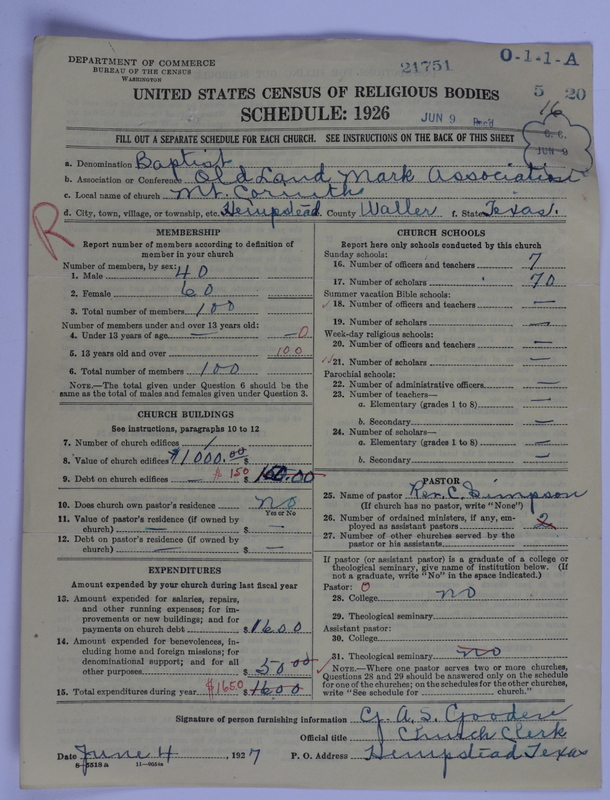 DEPARTMENT OF COMMERCE
BUREAU OF THE CENSUS
WASHINGTON
21751
O-1-1-A
5 20
16
UNITED STATES CENSUS OF RELIGIOUS BODIES
SCHEDULE: 1926
JUN 9 Rec'd
C. C.
JUN 9
FILL OUT A SEPARATE SCHEDULE FOR EACH CHURCH. SEE INSTRUCTIONS ON THE BACK OF THIS SHEET
a. Denomination Baptist
b. Association or Conference Old Land Mark Association
c. Local name of church Mt. Corinth
d. City, town, village, or township, etc. Hempstead County Waller f. State Texas.
R
MEMBERSHIP
Report number of members according to definition of
member in your church
Number of members, by sex:
1. Male 40
2. Female 60
3. Total number of members 100
Number of members under and over 13 years old:
4. Under 13 years of age — — 0
5. 13 years old and over 100
6. Total number of members 100
NOTE.—The total given under Question 6 should be
same as the total of males and females given under Question 3.
CHURCH BUILDINGS
See instructions, paragraphs 10 to 12
7. Number of church edifices 1
8. Value of church edifices $1000.00 $
9. Debt on church edifices — $150 $ 150.00
10. Does church own pastor's residence no
Yes or No
11. Value of pastor's residence (if owned by
church) — $ —
12. Debt on pastor's residence (if owned by
church) — $ —
EXPENDITURES
Amount expended by your church during last fiscal year
13. Amount expended for salaries, repairs,
and other running expenses; for im-
provements or new buildings; and for
payments on church debt $ 1600
14. Amount expended for benevolences, in-
cluding home and foreign missions; for
denominational support; and for all
other purposes $ 50 00
15. Total expenditures during year $1650 $ 1600
CHURCH SCHOOLS
Report here only schools conducted by this church
Sunday schools:
16. Number of officers and teachers 7
17. Number of scholars 70
Summer vacation Bible schools:
18. Number of officers and teachers —
19. Number of scholars —
Week-day religious schools:
20. Number of officers and teachers —
21. Number of scholars —
Parochial schools:
22. Number of administrative officers —
23. Number of teachers—
a. Elementary (grades 1 to 8) —
b. Secondary —
24. Number of scholars—
a. Elementary (grades 1 to 8) —
b. Secondary —
PASTOR
25. Name of pastor Rev. C. Simpson
(If church has no pastor, write "None")
26. Number of ordained ministers, if any, em-
ployed as assistant pastors 2
27. Number of other churches served by the
pastor or his assistants
If pastor (or assistant pastor) is a graduate of a college or
theological seminary, give name of institution below. (If
not a graduate, write "No" in the space indicated.)
Pastor: 0
28. College no
29. Theological seminary
Assistant pastor:
30. College
31. Theological seminary no
NOTE.—Where one pastor serves two or more churches,
Questions 28 and 29 should be answered only on the schedule
for one of the churches; on the schedules for the other churches,
write "See schedule for church."
Signature of person furnishing information G. A. S. Gooden
Official title Church Clerk
Date June 4, 1927 P. O. Address Hempstead Texas
8—5518a 11—9024a